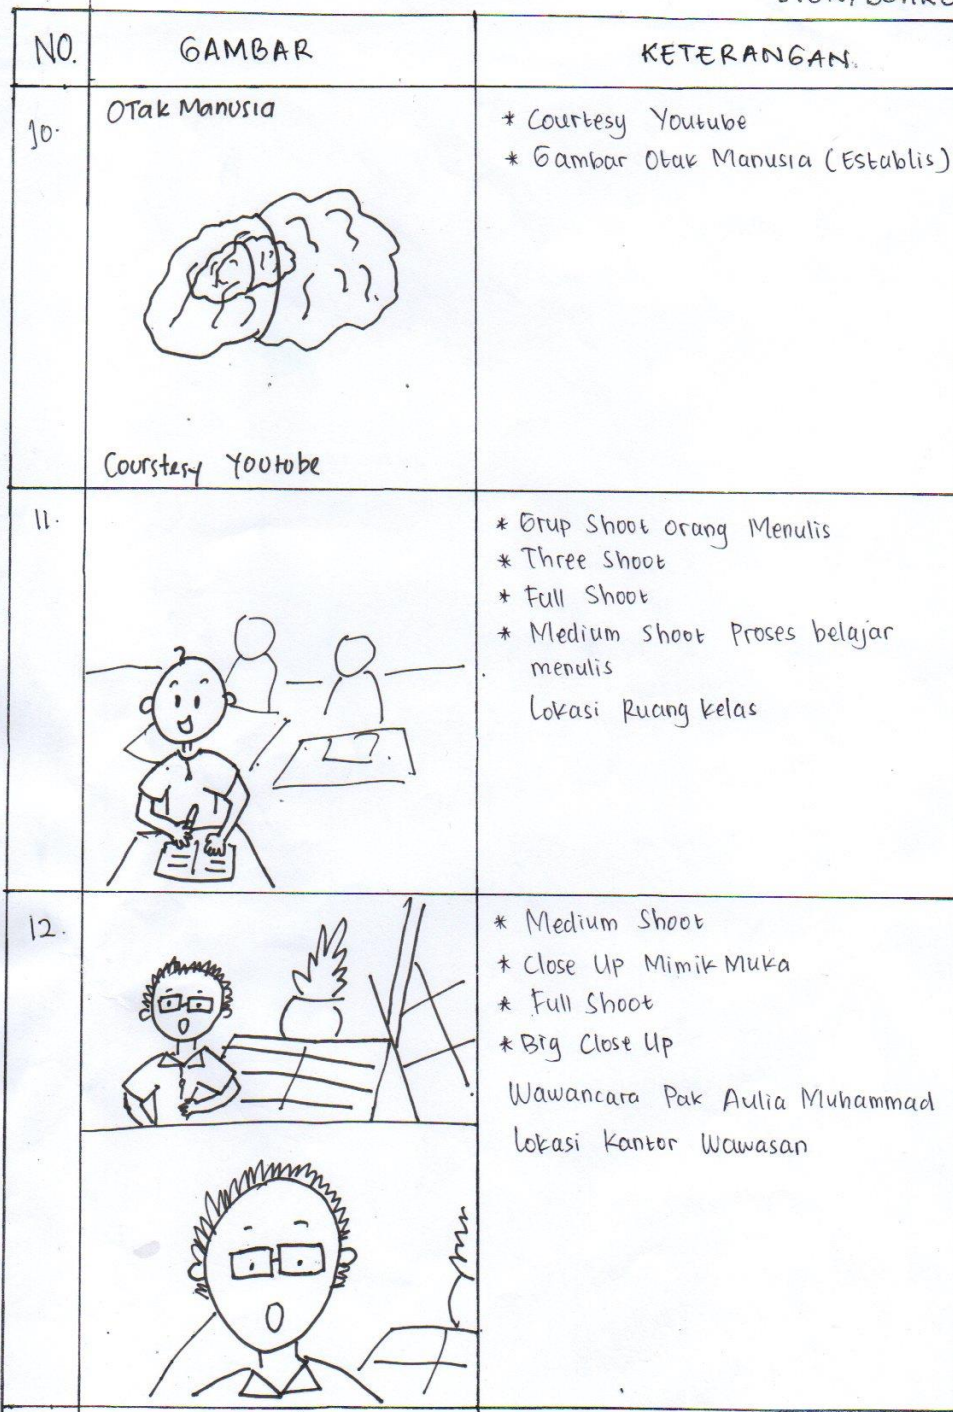 NO. GAMBAR KETERANGAN.
10. Otak Manusia
* Courtesy Youtube
* Gambar Otak Manusia (Establis)
Courstesy Youtobe
11.
* Grup Shoot orang Menulis
* Three Shoot
* Full Shoot
* Medium Shoot Proses belajar
menulis
Lokasi Ruang kelas
12.
* Medium Shoot
* Close Up Mimik Muka
* Full Shoot
* Big Close Up
Wawancara Pak Aulia Muhammad
Lokasi Kantor Wawasan